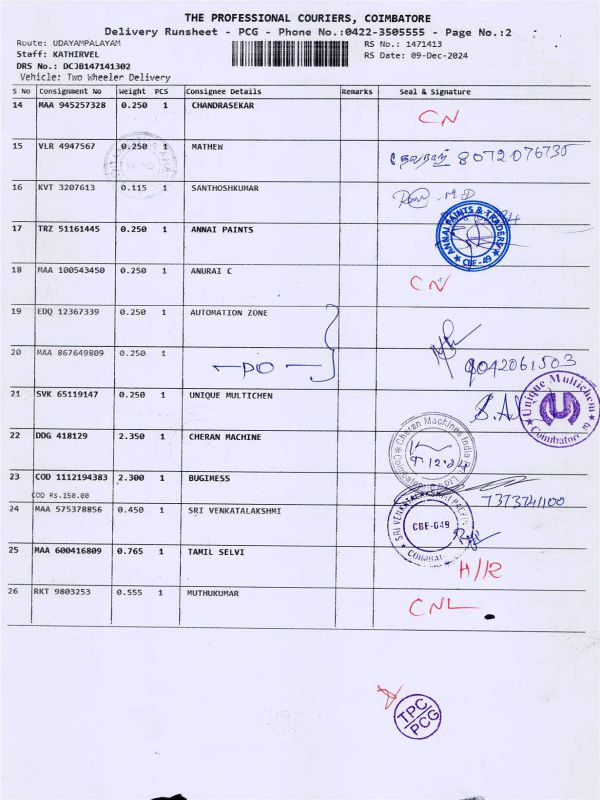 THE PROFESSIONAL COURIERS, COIMBATORE
Delivery Runsheet - PCG - Phone No.:0422-3505555 - Page No.:2
Route: UDAYAMPALAYAM
RS No.: 1471413
Staff: KATHIRVEL
RS Date: 09-Dec-2024
DRS No.: DCJB147141302
Vehicle: Two Wheeler Delivery
S No Consignment No Weight PCS Consignee Details Remarks Seal & Signature
14 MAA 945257328 0.250 1 CHANDRASEKAR CN
15 VLR 4947567 0.250 1 MATHEW 8072076735
16 KVT 3207613 0.115 1 SANTHOSHKUMAR
17 TRZ 51161445 0.250 1 ANNAI PAINTS ANNAI PAINTS & TRADERS CBE-49
18 MAA 100543450 0.250 1 ANURAI C CN
19 EDQ 12367339 0.250 1 AUTOMATION ZONE
20 MAA 867649809 0.250 1 DO 9042061503
21 SVK 65119147 0.250 1 UNIQUE MULTICHEN Unique Multichem Coimbatore
22 DDG 418129 2.350 1 CHERAN MACHINE Cheran Machines India 9.12.24
23 COD 1112194383 2.300 1 BUGIMESS 7373741100
COD Rs.150.00
24 MAA 575378856 0.450 1 SRI VENKATALAKSHMI SRI VENKATALAKSHMI CBE-049
25 MAA 600416809 0.765 1 TAMIL SELVI H/R
26 RKT 9803253 0.555 1 MUTHUKUMAR CNL
TPC
PCG